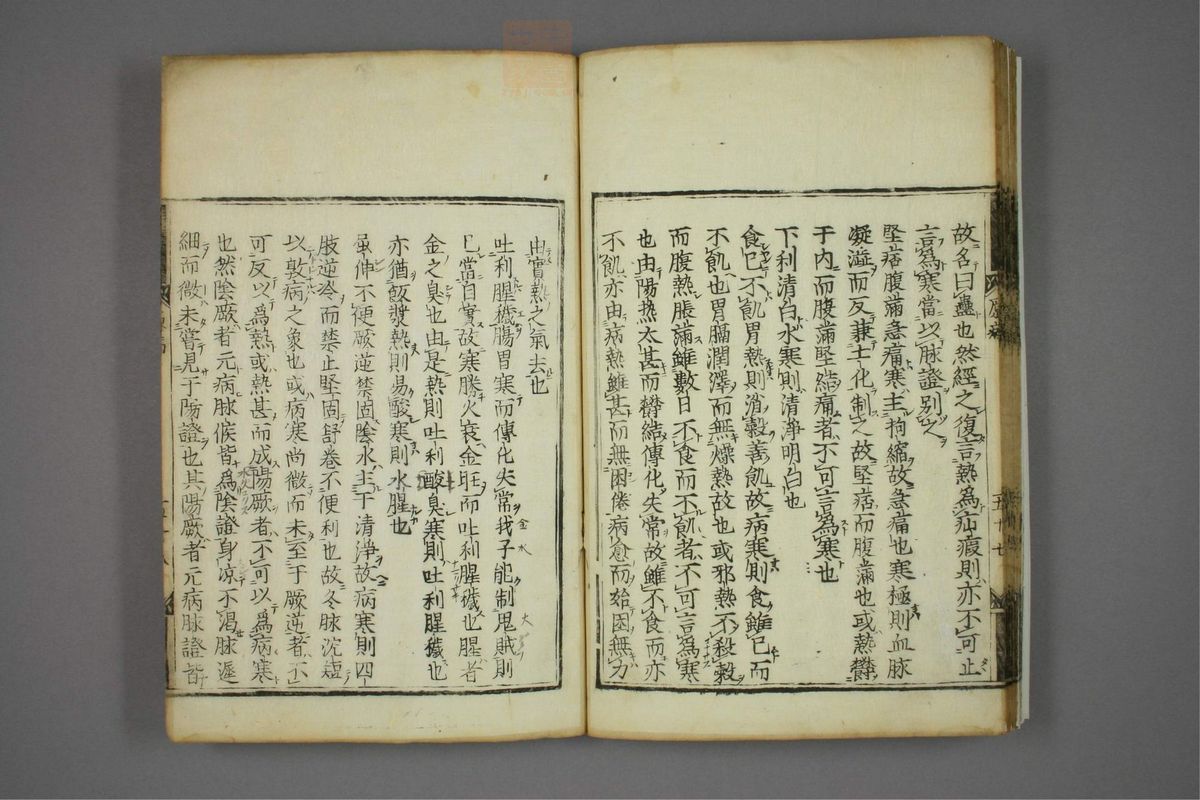 故名曰蠱也然經之復言熱為疝瘕則亦不可止
言為寒當以脉證別之
堅痞腹滿急痛寒主拘縮故急痛也寒極則血脉
凝澁而反兼土化制之故堅痞而腹滿也或熱欝
于内而腹滿堅結痛者不可言為寒也
下利清白水寒則清淨明白也
食已不飢胃熱則消穀善飢故病寒則食雖已而
不飢也胃膈潤澤而無燥熱故也或邪熱不殺穀
而腹熱脹滿雖數日不食而不飢者不可言為寒
也由陽熱太甚而欝結傳化失常故雖不食而亦
不飢亦由病熱雖甚而無困倦病愈而始困無力
由實熱之氣去也
吐利腥穢腸胃寒而傳化失常我子能制鬼賊則
己當自實故寒勝火衰金旺而吐利腥穢也腥者
金之臭也由是熱則吐利酸臭寒則吐利腥穢也
亦猶飯漿熱則易酸寒則水腥也
屈伸不便厥逆禁固陰水主于清淨故病寒則四
肢逆冷而禁止堅固舒卷不便利也故冬脉沈短
以敦病之象也或病寒尚微而未至于厥逆者不
可反以為熱或熱甚而成陽厥者不可以為病寒
也然陰厥者元病脉候皆為陰證身凉不渴脉遲
細而微未嘗見于陽證也其陽厥者元病脉證皆
五十七